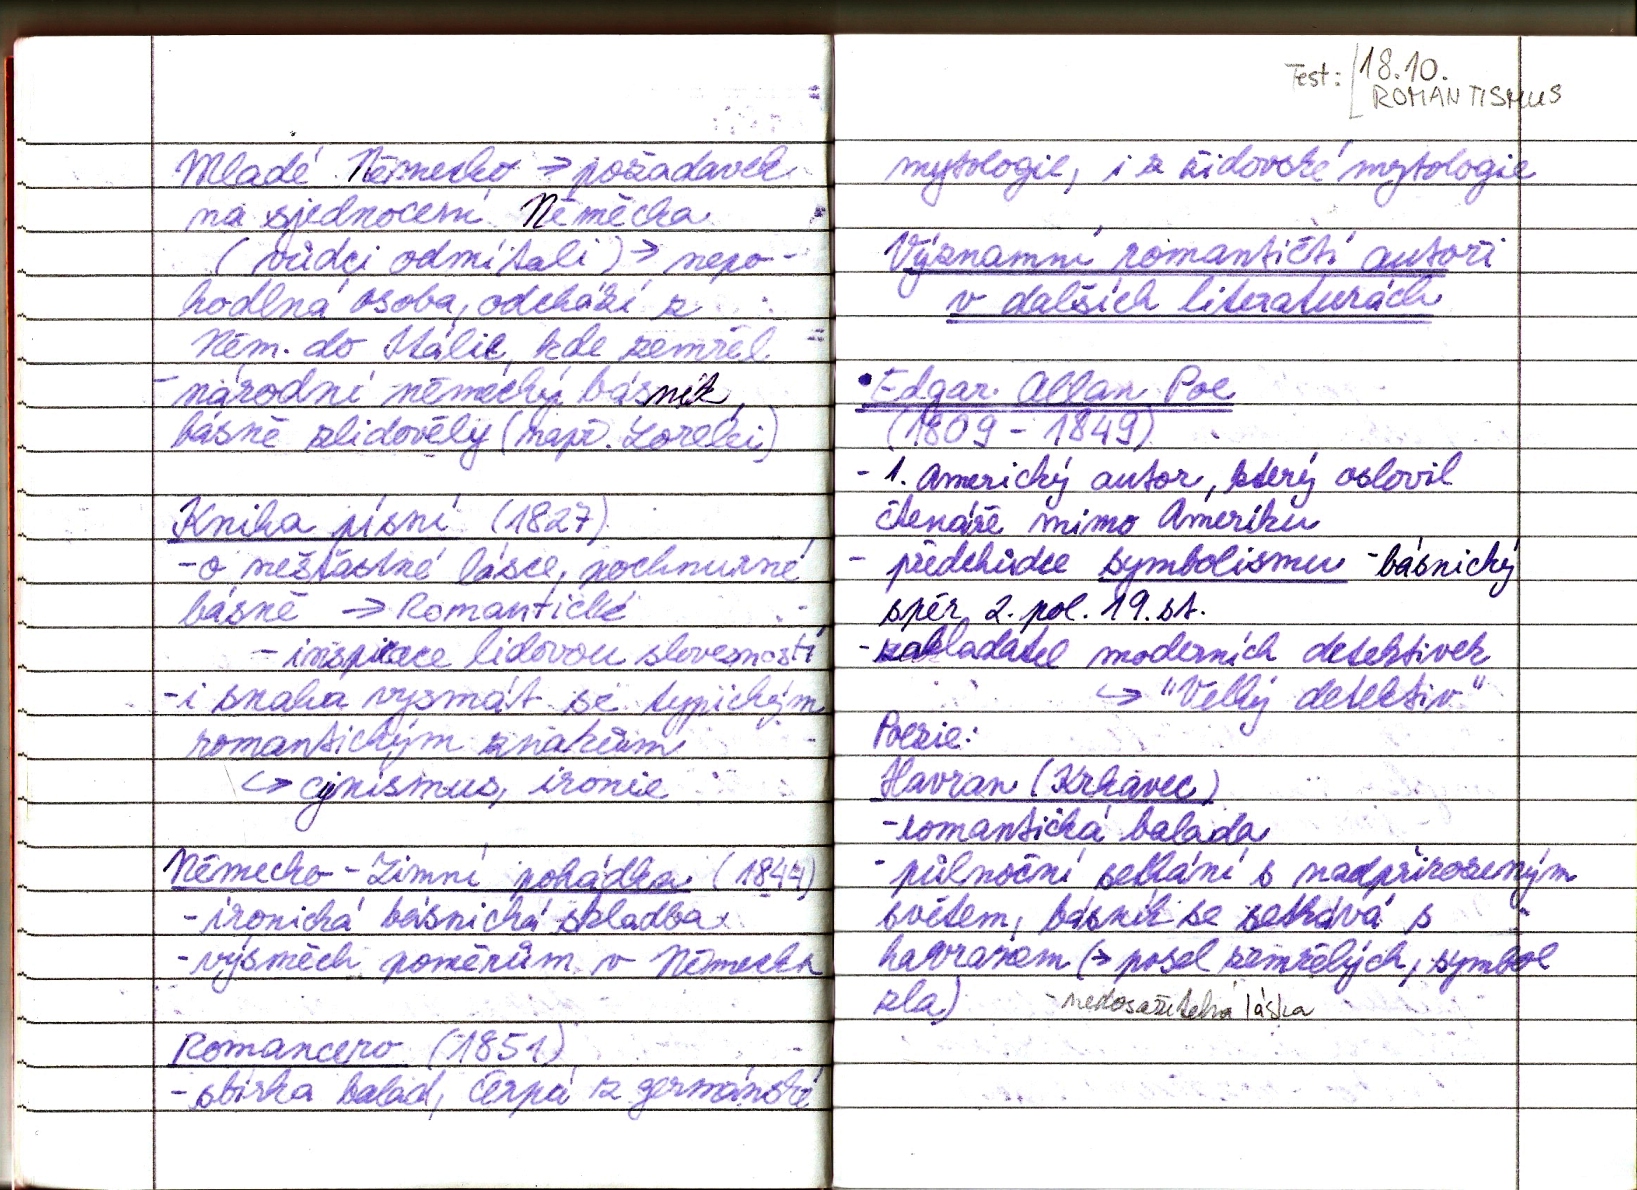 Mladé Německo → požadavek
na sjednocení Německa
(vůdci odmítali) → nepo-
hodlná osoba, odchází z
Něm. do Itálie, kde zemřel
- národní německý básník,
básně zlidověly (např. Lorelei)
Kniha písní (1827)
- o nešťastné lásce, pochmurné
básně → Romantické
- inspirace lidovou slovesností
- i snaha vysmát se typickým
romantickým znakům
↳ cynismus, ironie
Německo - Zimní pohádka (1844)
- ironická básnická skladba
- výsměch poměrům v Německu
Romancero (1851)
- sbírka balad, čerpá z germánské
Test: 18.10.
ROMANTISMUS
mytologie, i z židovské mytologie
Významní romantičtí autoři
v dalších literaturách
• Edgar Allan Poe
(1809 - 1849)
- 1. Americký autor, který oslovil
čtenáře mimo Ameriku
- předchůdce symbolismu - básnický
směr 2. pol. 19. st.
- zakladatel moderních detektivek
↳ "Velký detektiv"
Poezie:
Havran (Krkavec)
- romantická balada
- půlnoční setkání s nadpřirozeným
světem, básník se setkává s
havranem (→ posel zemřelých, symbol
zla) - nedosažitelná láska